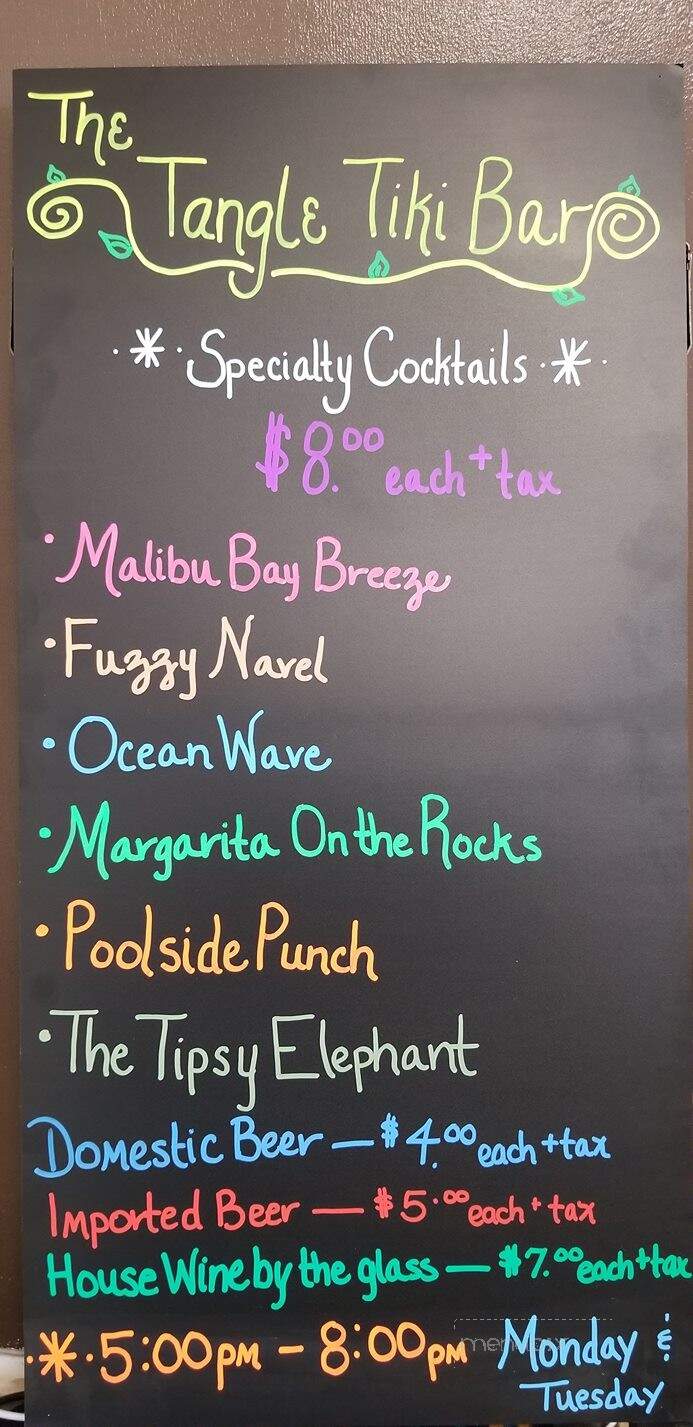 The
Tangle Tiki Bar
Specialty Cocktails
$8.00 each + tax
• Malibu Bay Breeze
• Fuzzy Navel
• Ocean Wave
• Margarita On the Rocks
• Poolside Punch
• The Tipsy Elephant
Domestic Beer — $4.00 each + tax
Imported Beer — $5.00 each + tax
House Wine by the glass — $7.00 each + tax
5:00pm - 8:00pm Monday &
Tuesday